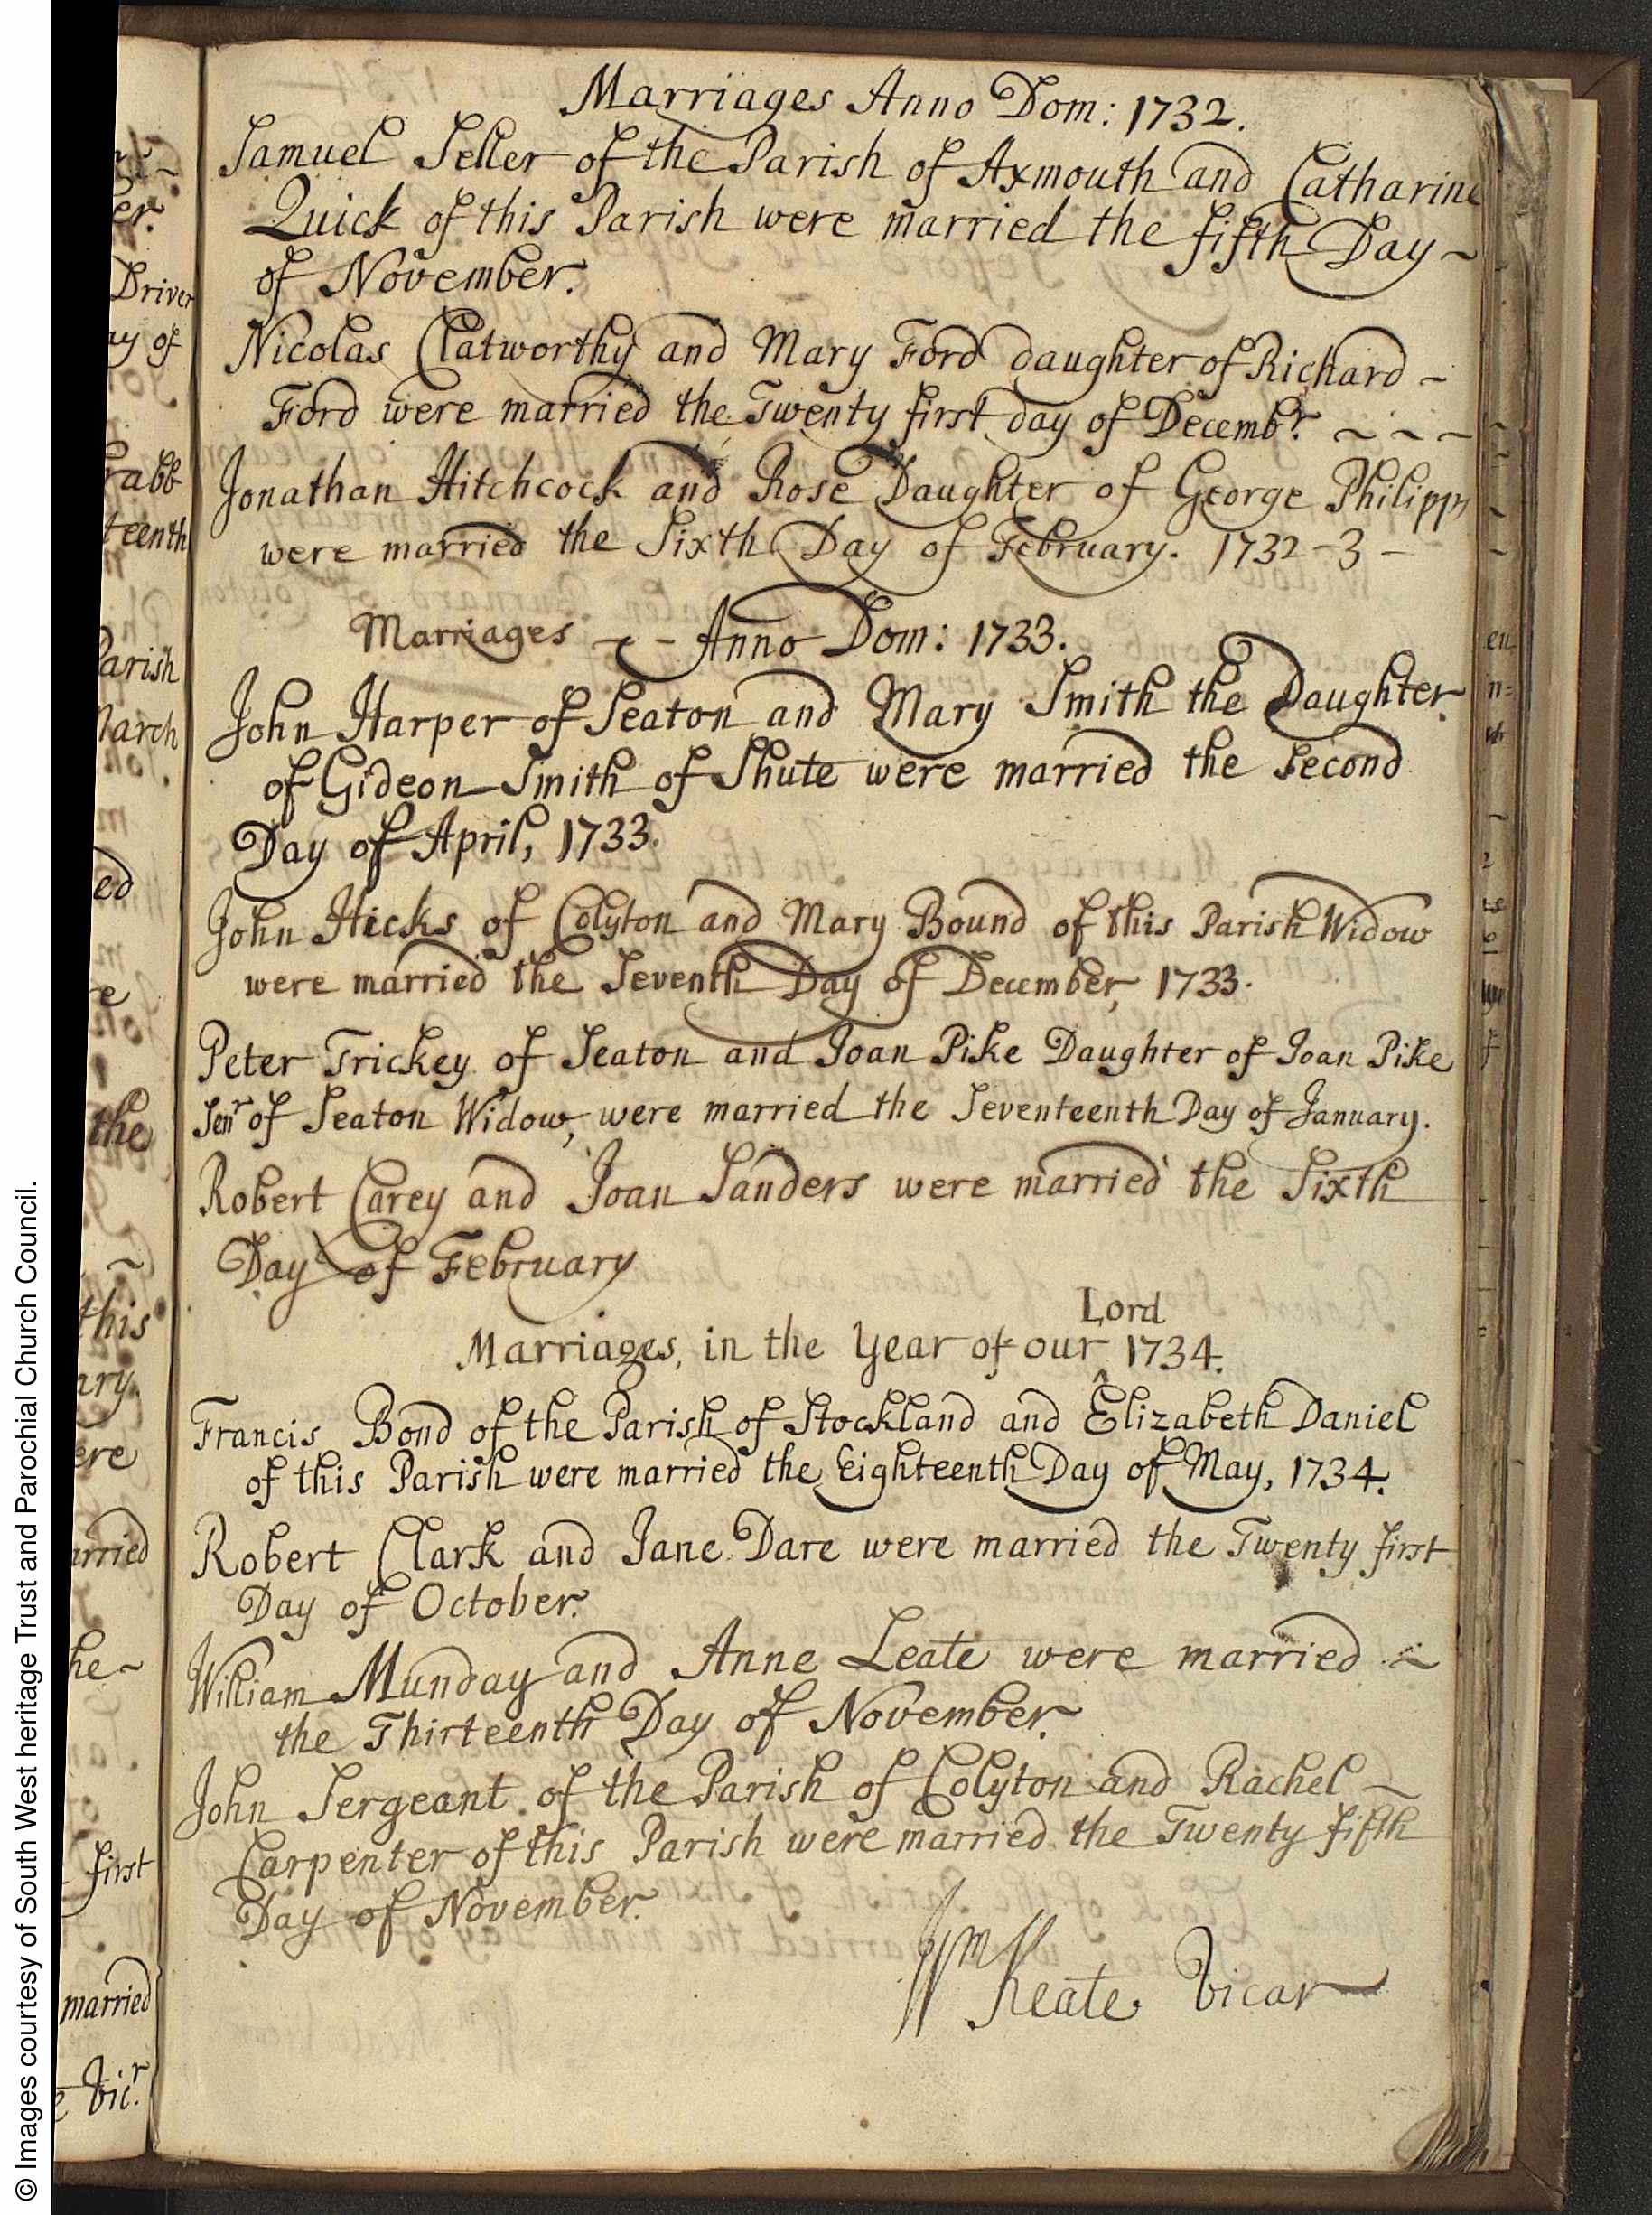 Marriages Anno Dom: 1732.
Samuel Seller of the Parish of Axmouth and Catharine
Quick of this Parish were married the fifth Day ~
of November.
Nicolas Clatworthy and Mary Ford daughter of Richard ~
Ford were married the Twenty first day of Decembr. ~ ~ ~
Jonathan Hitchcock and Rose Daughter of George Philipps
were married the Sixth Day of February. 1732-3 -
Marriages ~ - Anno Dom: 1733.
John Harper of Seaton and Mary Smith the Daughter
of Gideon Smith of Shute were married the Second
Day of April, 1733.
John Hicks of Colyton and Mary Bound of this Parish Widow
were married the Seventh Day of December, 1733.
Peter Trickey of Seaton and Joan Pike Daughter of Joan Pike
Senr of Seaton Widow, were married the Seventeenth Day of January.
Robert Carey and Joan Sanders were married the Sixth
Day of February
Lord
Marriages, in the Year of our ^ 1734.
Francis Bond of the Parish of Stockland and Elizabeth Daniel
of this Parish were married the Eighteenth Day of May, 1734.
Robert Clark and Jane Dare were married the Twenty first
Day of October.
William Munday and Anne Leate were married ~
the Thirteenth Day of November.
John Sergeant of the Parish of Colyton and Rachel ~
Carpenter of this Parish were married the Twenty fifth
Day of November.
Wm Keate Vicar
er.
Driver
ay of
teenth
Parish
March
ed
the
this
ary.
ere
arried
he ~
first
married
Vicr.
© Images courtesy of South West heritage Trust and Parochial Church Council.